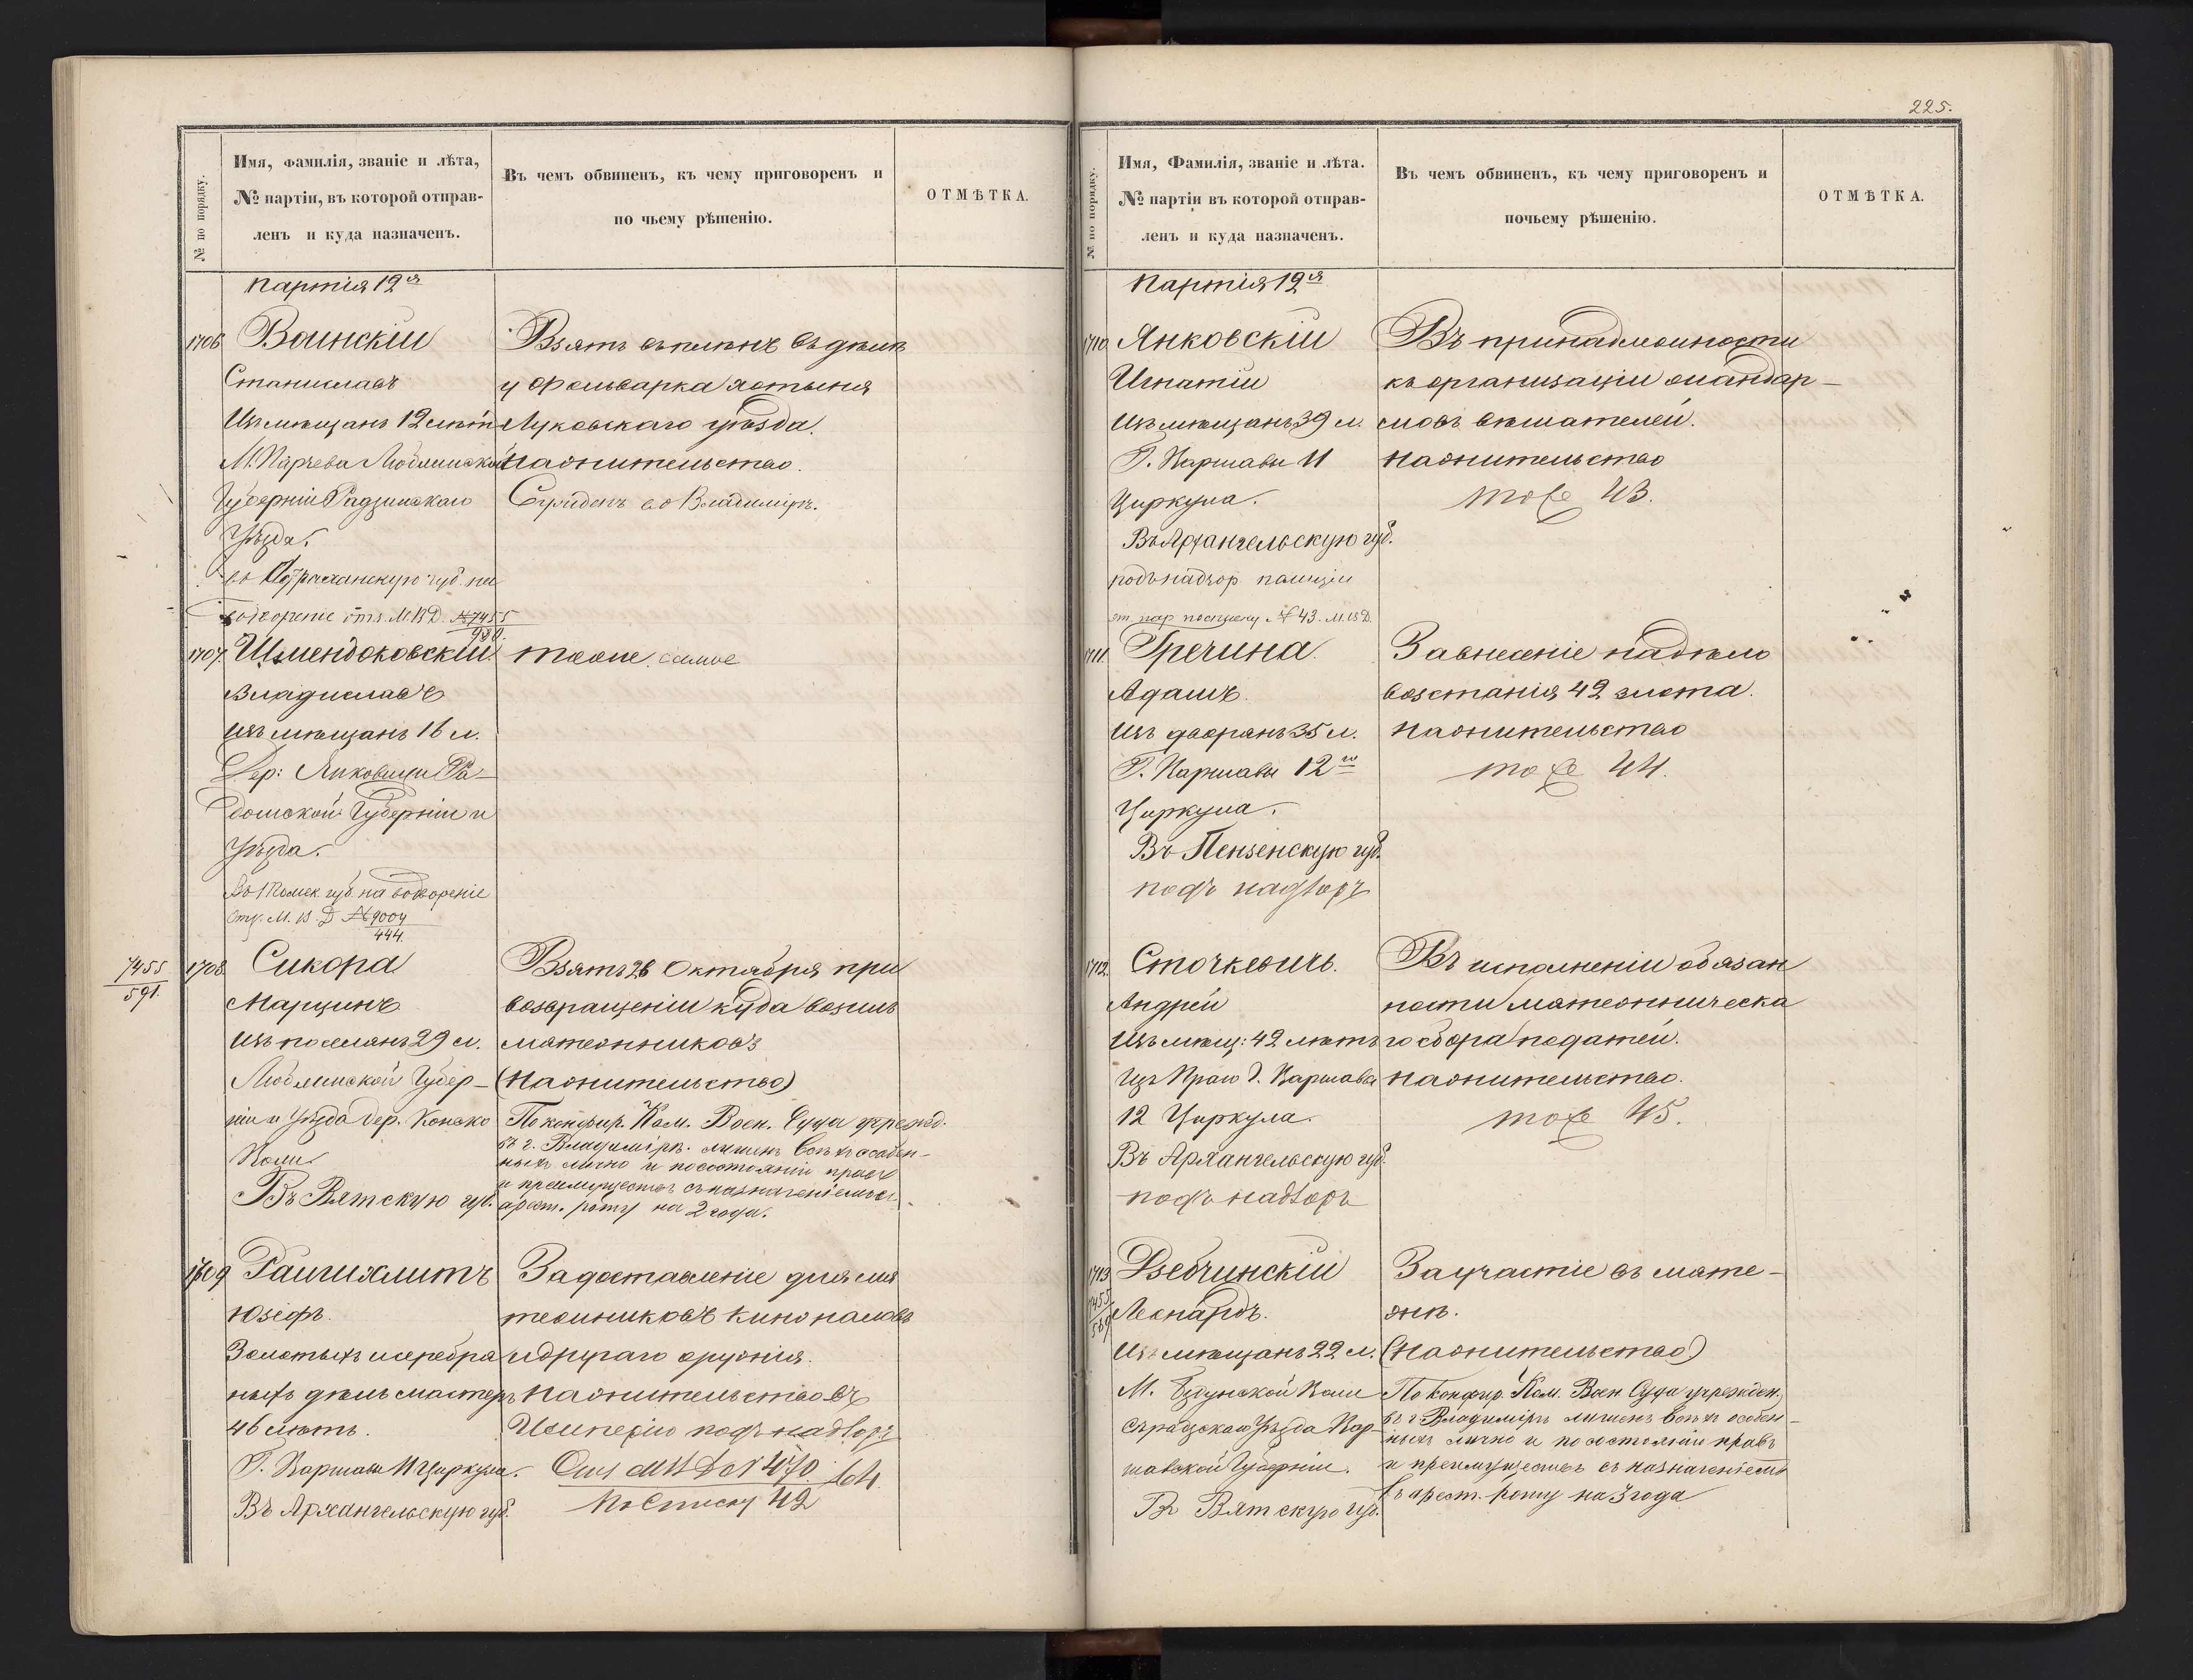 225.
№ по порядку.
Имя, фамилія, званіе и лѣта,
№ партіи, въ которой отправ-
ленъ и куда назначенъ.
Въ чемъ обвиненъ, къ чему приговоренъ и
по чьему рѣшенію.
ОТМѢТКА.
Партія 12я
1706 Воинскій
Станиславъ
Изъ мѣщанъ 12 лѣтъ
М. Парчева Люблинской
Губерніи Радзинскаго
Уѣзда.
въ Астраханскую губ. на
водвореніе отн. М.В.Д. № 7455
980.
Взятъ въ плѣнъ въ дѣлѣ
у Фольварка
Луковскаго уѣзда.
На жительство.
Сужденъ во Владимірѣ.
1707. Шмендоковскій
Владиславъ
Изъ мѣщанъ 16 л.
Дер: Янковицы Ра-
домской Губерніи и
Уѣзда.
Въ Томск. губ. на водвореніе
Отн. М.В.Д № 9004
444.
Тоже самое
7455
591.
1708. Сикора
Марцинъ
Изъ поселянъ 29 л.
Люблинской Губер-
ніи и Уѣзда дер. Конско
Воли
Въ Вятскую губ.
Взятъ 26 Октября при
возвращеніи куда возилъ
мятежниковъ
(На жительство)
По конфир. Ком. Воен. Суда учрежд.
въ г. Владимірѣ. лишенъ всѣхъ особен-
ныхъ лично и по состоянію правъ
и преимуществъ съ назначеніемъ въ
арест. роту на 2 года.
1709
Юзефъ.
Золотыхъ и серебря
ныхъ дѣлъ мастеръ
46 лѣтъ.
Г. Варшавы 11 Циркула.
Въ Архангельскую губ.
За доставленіе для мя
тежниковъ кинжаловъ
и другаго оружія.
На жительство въ
Имперію подъ надзоръ
Отн М В Д № 470
64.
По Списку 42
№ по порядку.
Имя, Фамилія, званіе и лѣта.
№ партіи въ которой отправ-
ленъ и куда назначенъ.
Въ чемъ обвиненъ, къ чему приговоренъ и
почьему рѣшенію.
ОТМѢТКА.
Партія 12я
1710. Янковскій
Игнатій
Изъ мѣщанъ 39 л.
Г. Варшавы 11
Циркула.
Въ Архангельскую губ.
подъ надзор полиціи
от. пор по списку № 43. М.В.Д.
Въ принадлежности
къ организаціи жандар-
мовъ вѣшателей.
На жительство
тоже 43.
1711. Гречина.
Адамъ.
Изъ дворянъ 35 л.
Г. Варшавы 12го
Циркула.
Въ Пензенскую губ.
подъ надзоръ
За внесеніе на дѣло
возстанія 42 злота.
На жительство
тоже 44.
1712. Сточкевичъ.
Андрей
Изъ мѣщ: 42 лѣтъ
Изъ Праги Г. Варшава
12 Циркула.
Въ Архангельскую губ.
подъ надзоръ
Въ исполненіи обязан
ности мятежническа
го сбора податей.
На жительство.
тоже 45.
1713
7455
589
Дзебчинскій
Леонардъ.
Изъ мѣщанъ 22 л.
М. Здунской Воли
Сѣрадзскаго Уѣзда Вар-
шавской Губерніи.
Въ Вятскую губ.
За участіе въ мяте-
жѣ.
(На жительство)
По Конфир. Ком. Воен Суда учрежден.
въ г Владимірѣ лишенъ всѣхъ особен-
ныхъ лично и по состоянію правъ
и преимуществъ съ назначеніемъ
въ арест. роту на 3 года